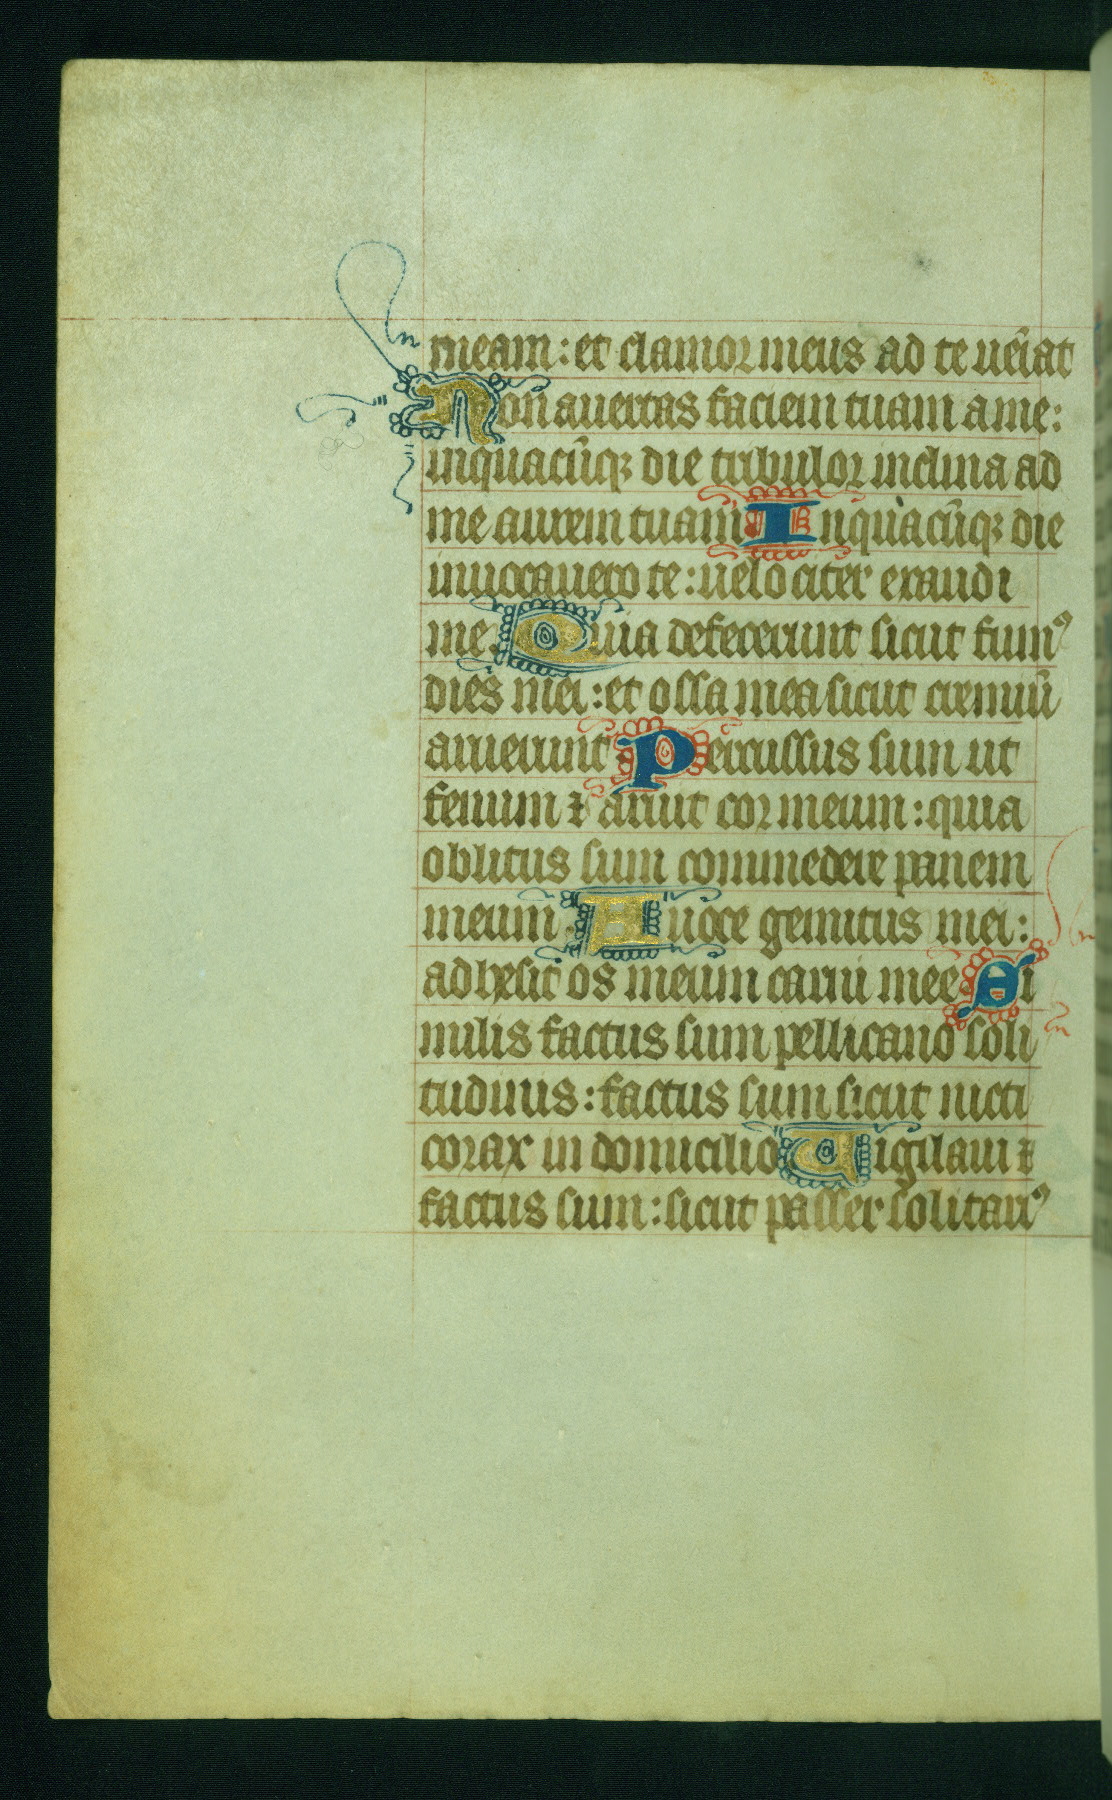 meam : et clamor meus ad te ueīat
Non auertas faciem tuam a me :
inquacūqꝫ die tribulor inclina ad
me aurem tuam Inquacūqꝫ die
inuocauero te : uelociter exaudi
me. Quia defecerunt sicut fumꝰ
dies mei : et ossa mea sicut cremiū
aruerunt Percussus sum ut
fenum ⁊ aruit cor meum : quia
oblitus sum commedere panem
meum. A uoce gemitus mei :
adhesit os meum carni mee Si
milis factus sum pellicano soli
tudinis : factus sum sicut nicti
corax in domicilio Uigilaui ⁊
factus sum : sicut passer solitariꝰ